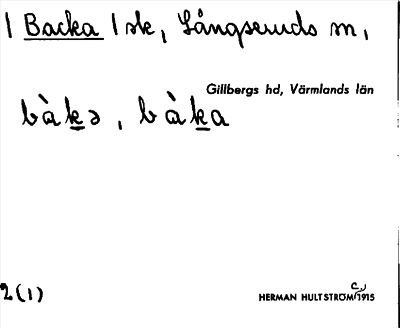 | Backa | sk, Långseruds sn,
Gillbergs hd, Värmlands län
bàkə, bàka
2(1)
HERMAN HULTSTRÖM 1915